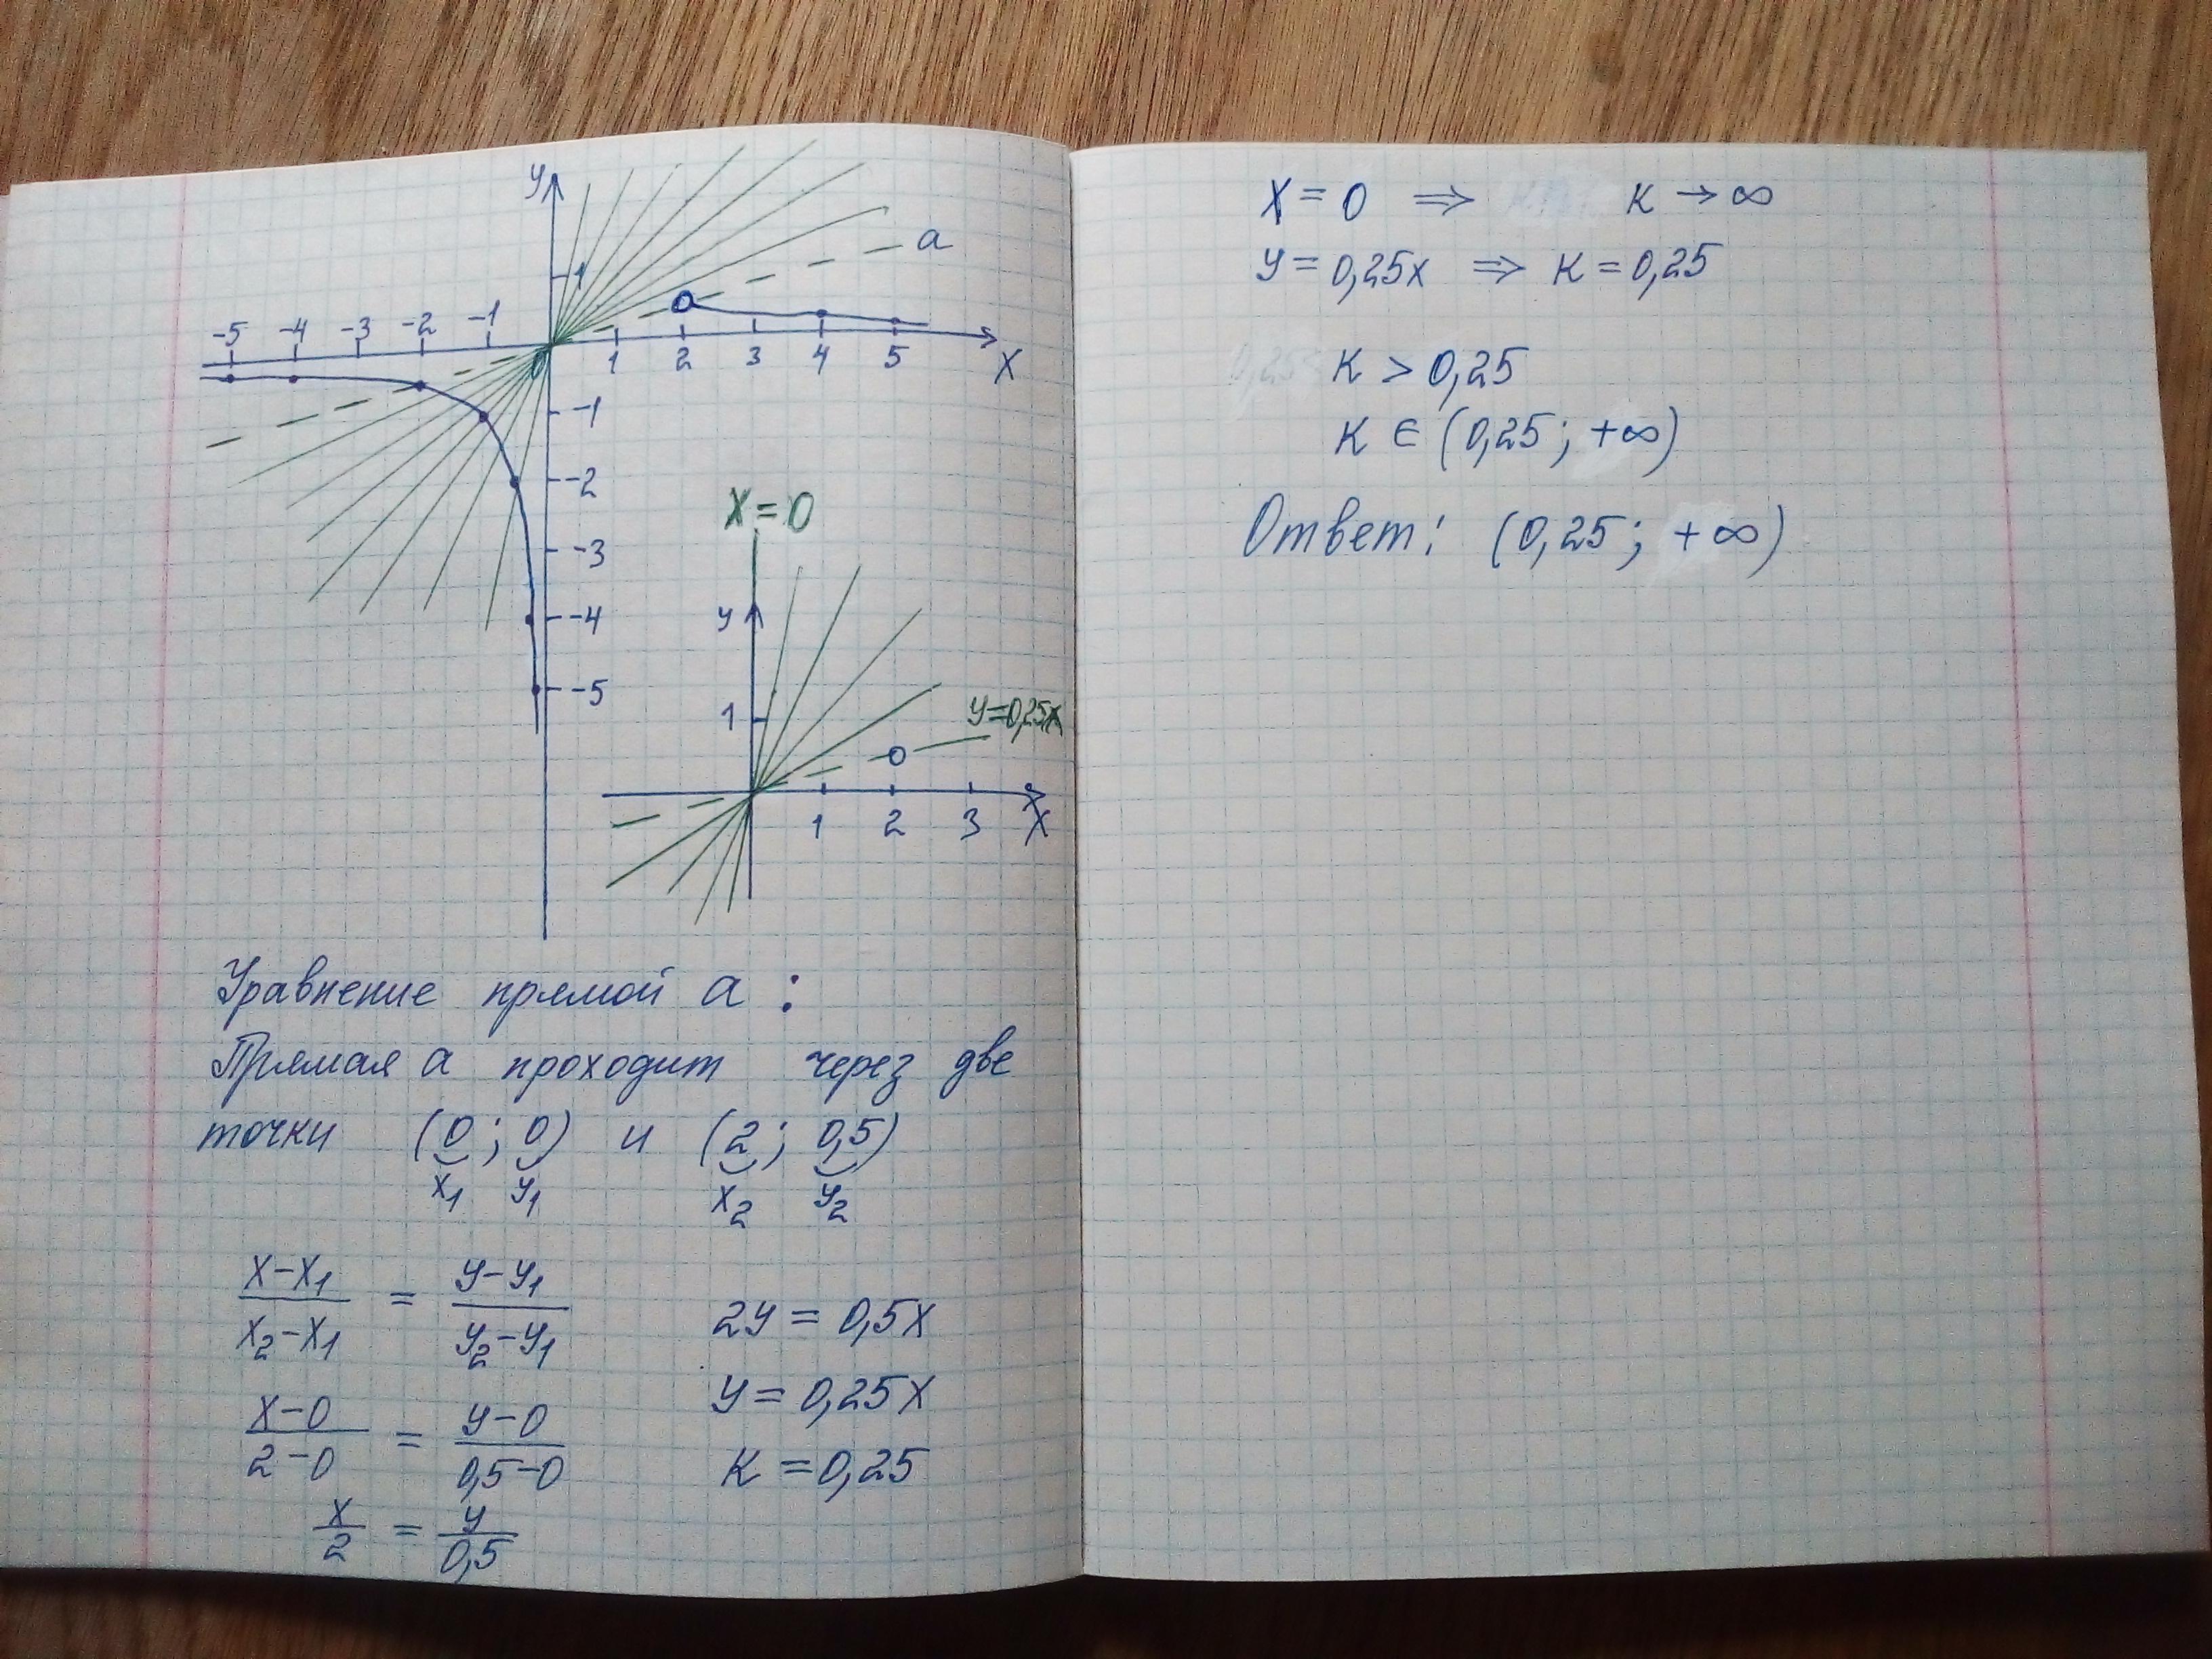 y
a
1
-5 -4 -3 -2 -1
0 1 2 3 4 5 X
-1
-2
-3
-4
-5
X = 0
y
1
y=0,25x
1 2 3 X
Уравнение прямой a :
Прямая a проходит через две
точки (0 ; 0) и (2 ; 0,5)
x₁ y₁ x₂ y₂
(x-x₁)/(x₂-x₁) = (y-y₁)/(y₂-y₁)
(x-0)/(2-0) = (y-0)/(0,5-0)
x/2 = y/0,5
2y = 0,5x
y = 0,25x
к = 0,25
x = 0 ⇒ к → ∞
y = 0,25x ⇒ к = 0,25
к > 0,25
к ∈ (0,25 ; +∞)
Ответ: (0,25 ; +∞)